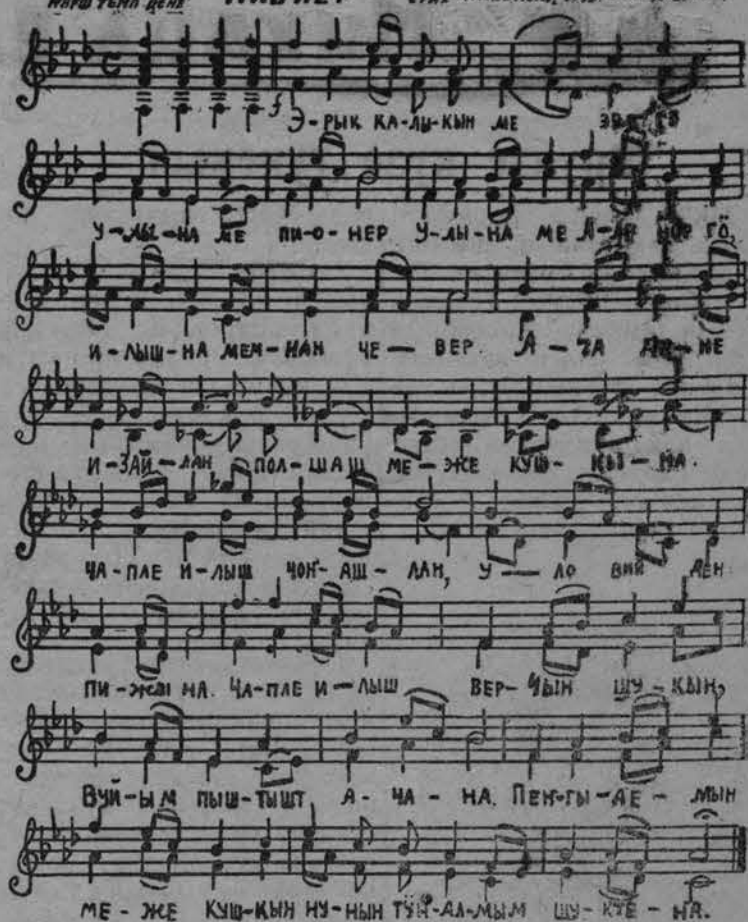 МАРШ ТЕМП ДЕНЕ
f
Э-РЫК КА-ЛЫ-КЫН МЕ
У-ЛЫ-НА МЕ ПИ-О-НЕР У-ЛЫ-НА МЕ ГӦ,
И-ЛЫШ-НА МЕМ-НАН ЧЕ — ВЕР. А — ЧА
И-ЗАЙ-ЛАН ПОЛ-ШАШ МЕ-ЖЕ КУШ-КЫ-НА.
ЧА-ПЛЕ И-ЛЫШ ЧОҤ-АШ-ЛАН, У — ЛО ВИЙ ДЕН
ПИ-ЖЫ НА. ЧА-ПЛЕ И-ЛЫШ ВЕР-ЧЫН ШУ-КЫН,
ВУЙ-ЫМ ПЫШ-ТЫШТ А-ЧА-НА. ПЕҤ-ГЫ-ДЕ-МЫН
МЕ-ЖЕ КУШ-КЫН НУ-НЫН ТӰҤ-АЛ-МЫМ ШУ-КТЕ-НА.